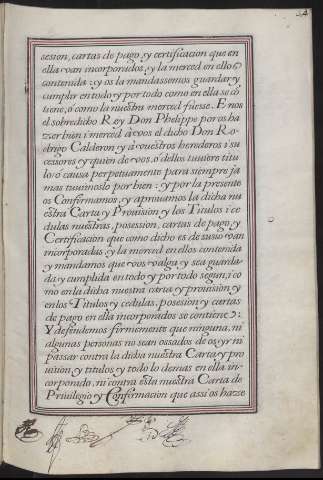 sesion, cartas de pago, y certificacion que en
ella van incorporados, y la merced en ellos
contenida: y os la mandassemos guardar y
cumplir en todo y por todo como en ella se cō
tiene, ó como la nuestra merced fuesse. E nos
el sobredicho Rey Don Phelippe por os ha
zer bien i merced à vos el dicho Don Ro-
drigo Calderon y à vuestros herederos i su
cessores y quien de vos, o dellos tuviere titu
lo ó causa perpetuamente para siempre ja
mas tuvimoslo por bien: y por la presente
os Confirmamos, y aprovamos la dicha nu
estra Carta y Provision y los Titulos i ce
dulas nuestras, possesion, cartas de pago, y
Certificacion que como dicho es de suso van
incorporadas y la merced en ellos contenida
y mandamos que vos valga y sea guarda
da y cumplida en todo y por todo segun, i co
mo en la dicha nuestra carta y provision, y
en los Titulos y cedulas, posesion y cartas
de pago en ella incorporados se contiene:
Y defendemos firmemente que ninguna, ni
algunas personas no sean ossados de os yr ni
passar contra la dicha nuestra Carta y pro
vision, y titulos y todo lo demas en ella in-
corporado, ni contra esta nuestra Carta de
Privilegio y Confirmacion que assi os hazse